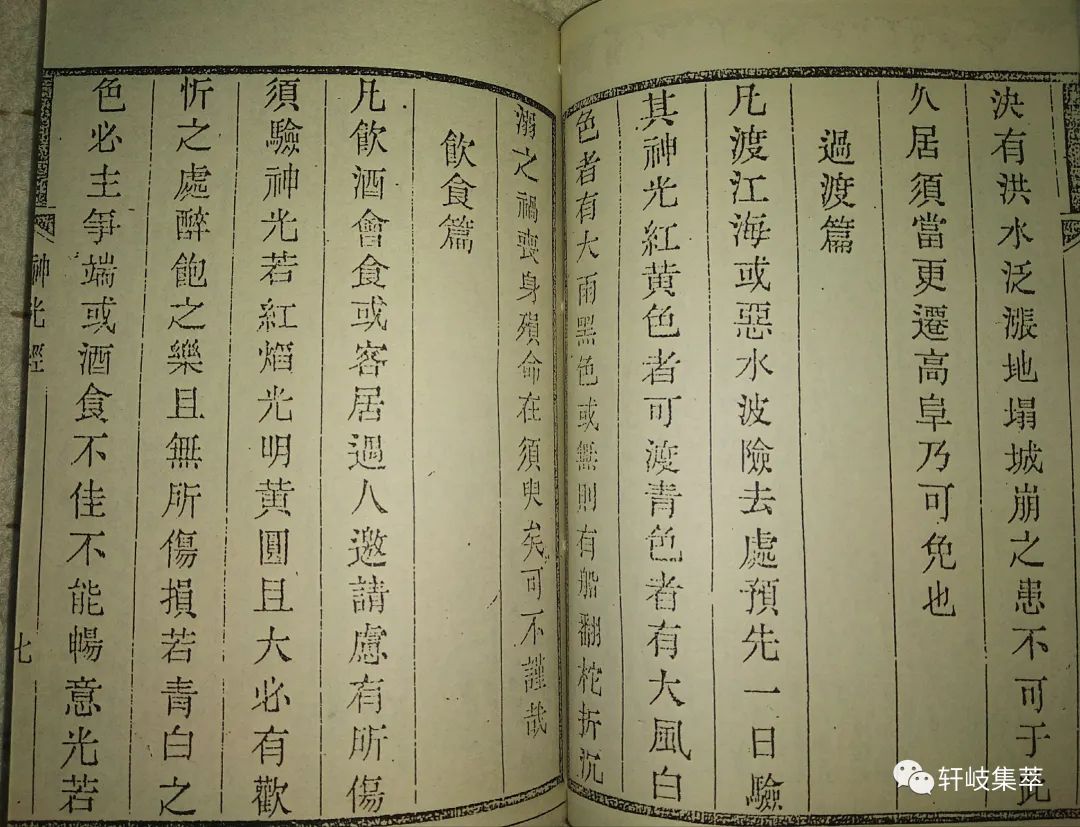 決有洪水泛漲地塌城崩之患不可于此
久居須當更遷高阜乃可免也
過渡篇
凡渡江海或惡水波險去處預先一日驗
其神光紅黃色者可渡青色者有大風白
色者有大雨黑色或無則有船翻柁折沉
溺之禍喪身殞命在須臾矣可不謹哉
飲食篇
凡飲酒會食或客居過人邀請慮有所傷
須驗神光若紅焰光明黃圓且大必有歡
忻之處醉飽之樂且無所傷損若青白之
色必主爭端或酒食不佳不能暢意光若
神光經
七
轩岐集萃